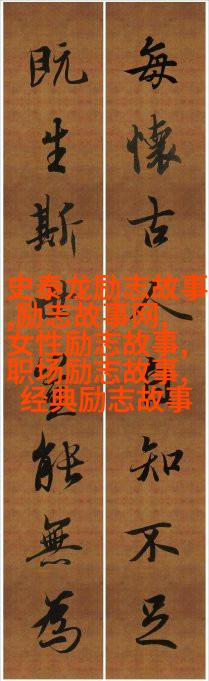 每懷古人知不足
既生斯能無為
史泰龙励志故事
,励志故事网,
女性励志故事,
职场励志故事,
经典励志故事